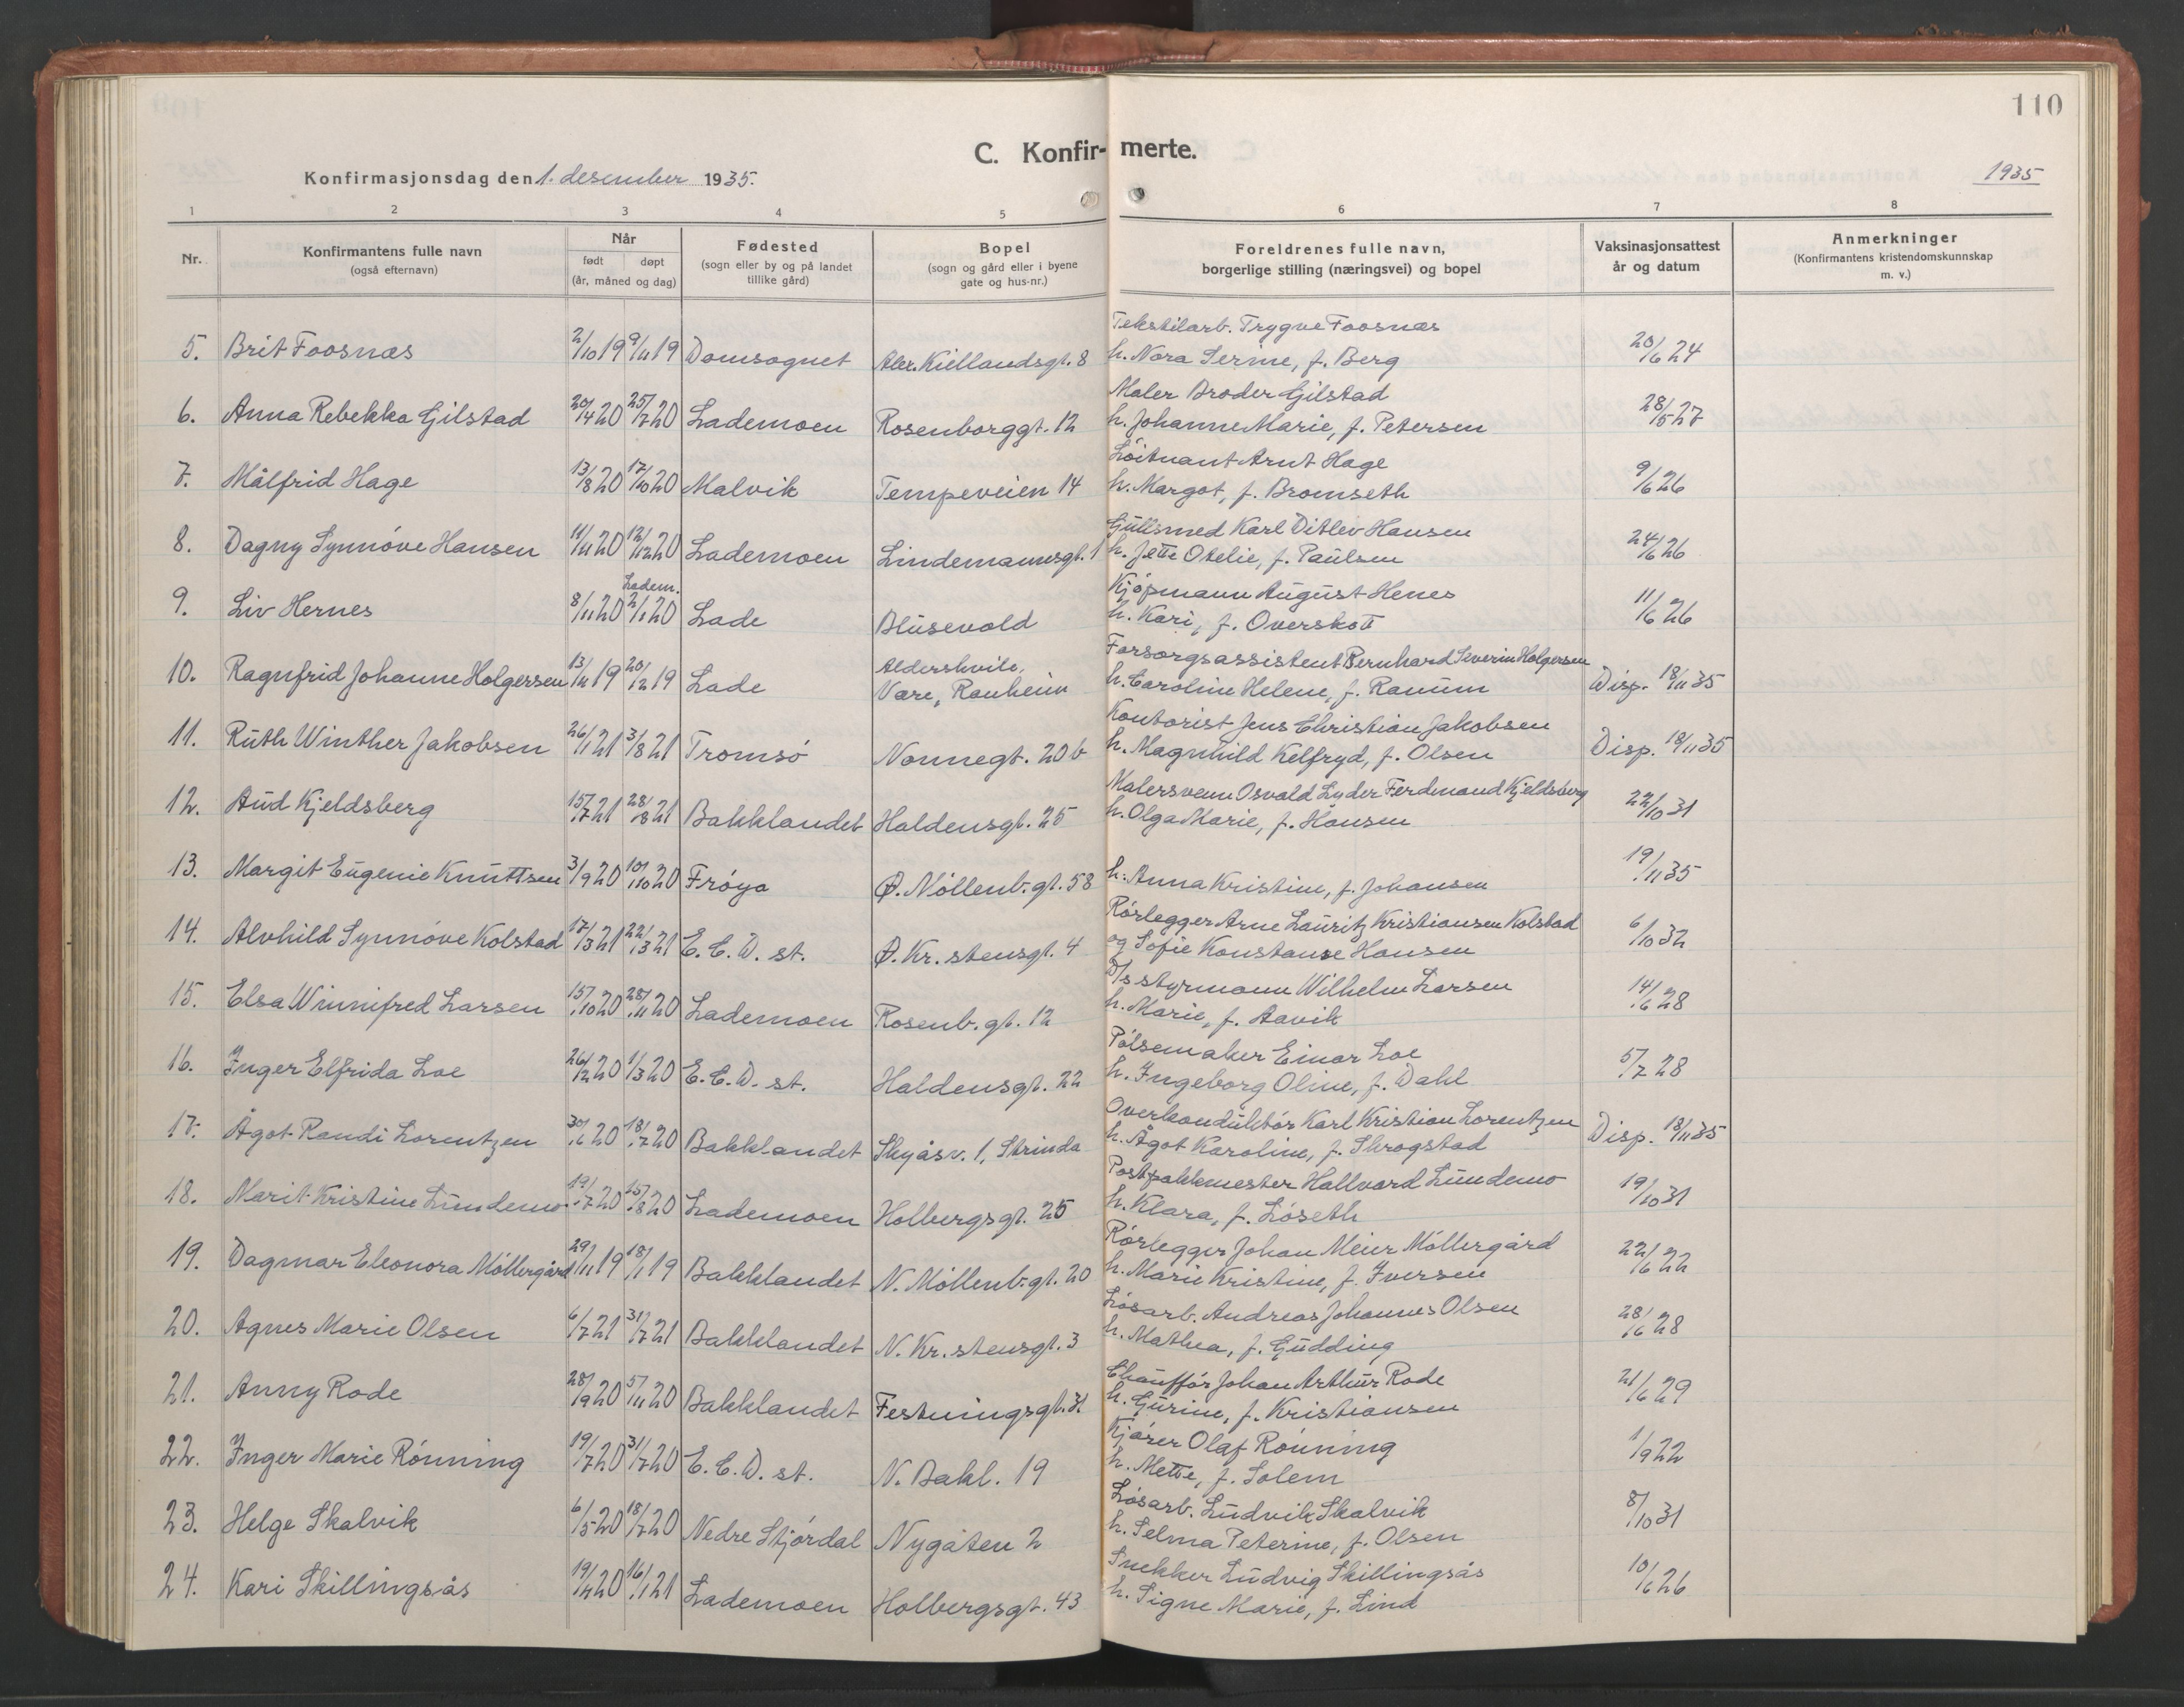 110
C. Konfir- merte.
Konfirmasjonsdag den 1. desember 1935.
1935
1 2 3 4 5 6 7 8
Nr.
Konfirmantens fulle navn
(også efternavn)
Når
født døpt
(år, måned og dag)
Fødested
(sogn eller by og på landet
tillike gård)
Bopel
(sogn og gård eller i byene
gate og hus-nr.)
Foreldrenes fulle navn,
borgerlige stilling (næringsvei) og bopel
Vaksinasjonsattest
år og datum
Anmerkninger
(Konfirmantens kristendomskunnskap
m. v.)
Tekstilarb. Trygve Foosnæs
5. Brit Foosnæs 2/10 19 9/11 19 Domsognet Alex. Kiellandsgt. 8 h. Nora Serine, f. Berg 20/6 24
Maler Broder Gilstad
6. Anna Rebekka Gilstad 20/4 20 25/7 20 Lademoen Rosenborggt. 12 h. Johanne Marie, f. Petersen 28/5 27
Løitnant Arnt Hage
7. Målfrid Hage 13/8 20 17/10 20 Malvik Tempeveien 14 h. Margot, f. Bromseth 9/6 26
Gullsmed Karl Ditlev Hansen
8. Dagny Synnöve Hansen 11/11 20 12/12 20 Lademoen Lindemannsgt. 1 h. Jette Otelie, f. Paulsen 24/6 26
Ladem.
Kjøpmann August Henes
9. Liv Hernes 8/11 20 2/1 20 Lade Blusevold h. Kari, f. Overskott 11/6 26
Aldershvile, Forsorgsassistent Bernhard Severin Holgersen
10. Ragnfrid Johanne Holgersen 13/11 19 20/12 19 Lade Være, Ranheim h. Caroline Helene, f. Ranum Disp. 18/11 35
Kontorist Jens Christian Jakobsen
11. Ruth Winther Jakobsen 26/1 21 3/8 21 Tromsö Nonnegt. 20 b h. Magnhild Kelfryd, f. Olsen Disp. 18/11 35
Malersvenn Osvald Lyder Ferdinand Kjeldsberg
12. Aud Kjeldsberg 15/7 21 28/8 21 Bakklandet Haldensgt. 25 h. Olga Marie, f. Hansen 22/10 31
13. Margit Eugenie Knuttsen 3/9 20 10/10 20 Fröya Ø. Möllenb. gt. 58 h. Anna Kristine, f. Johansen 19/11 35
Rørlegger Arne Lauritz Kristiansen Kolstad
14. Alvhild Synnöve Kolstad 17/3 21 22/3 21 E. C. D. st. Ø. Kr. stensgt. 4 og Sofie Konstanse Hansen 6/10 32
D/s styrmann Wilhelm Larsen
15. Elsa Winnifred Larsen 15/10 20 28/11 20 Lademoen Rosenb. gt. 12 h. Marie, f. Aavik 14/6 28
Pölsemaker Einar Loe
16. Inger Elfrida Loe 26/2 20 1/3 20 E. C. D. st. Haldensgt. 22 h. Ingeborg Oline, f. Dahl 5/7 28
Overkonduktör Karl Kristian Lorentzen
17. Ågot Randi Lorentzen 30/6 20 18/7 20 Bakklandet Skyåsv. 1, Strinda h. Ågot Karoline, f. Skrogstad Disp. 18/11 35
Postpakkmester Hallvard Lundemo
18. Marit Kristine Lundemo 19/7 20 15/8 20 Lademoen Holbergsgt. 25 h. Klara, f. Löseth 19/10 31
Rörlegger Johan Meier Möllergård
19. Dagmar Eleonora Möllergård 29/11 19 18/1 19 Bakklandet N. Möllenb. gt. 20 h. Marie Kristine, f. Iversen 22/6 22
Lösarb. Andreas Johannes Olsen
20. Agnes Marie Olsen 6/7 21 31/7 21 Bakklandet N. Kr. stensgt. 3 h. Mathea, f. Gudding 28/6 28
Chaufför Johan Arthur Rode
21. Anny Rode 28/9 20 5/11 20 Bakklandet Festningsgt. 31 h. Gurine, f. Kristiansen 21/6 29
Kjörer Olaf Rönning
22. Inger Marie Rönning 19/7 20 31/7 20 E. C. D. st. N. Bakl. 19 h. Mette, f. Solem 1/9 22
Lösarb. Ludvik Skalvik
23. Helge Skalvik 6/5 20 18/7 20 Nedre Stjördal Nygaten 2 h. Selma Peterine, f. Olsen 8/10 31
Snekker Ludvig Skillingsås
24. Kari Skillingsås 19/4 20 16/1 21 Lademoen Holbergsgt. 43 h. Signe Marie, f. Lind 10/6 26